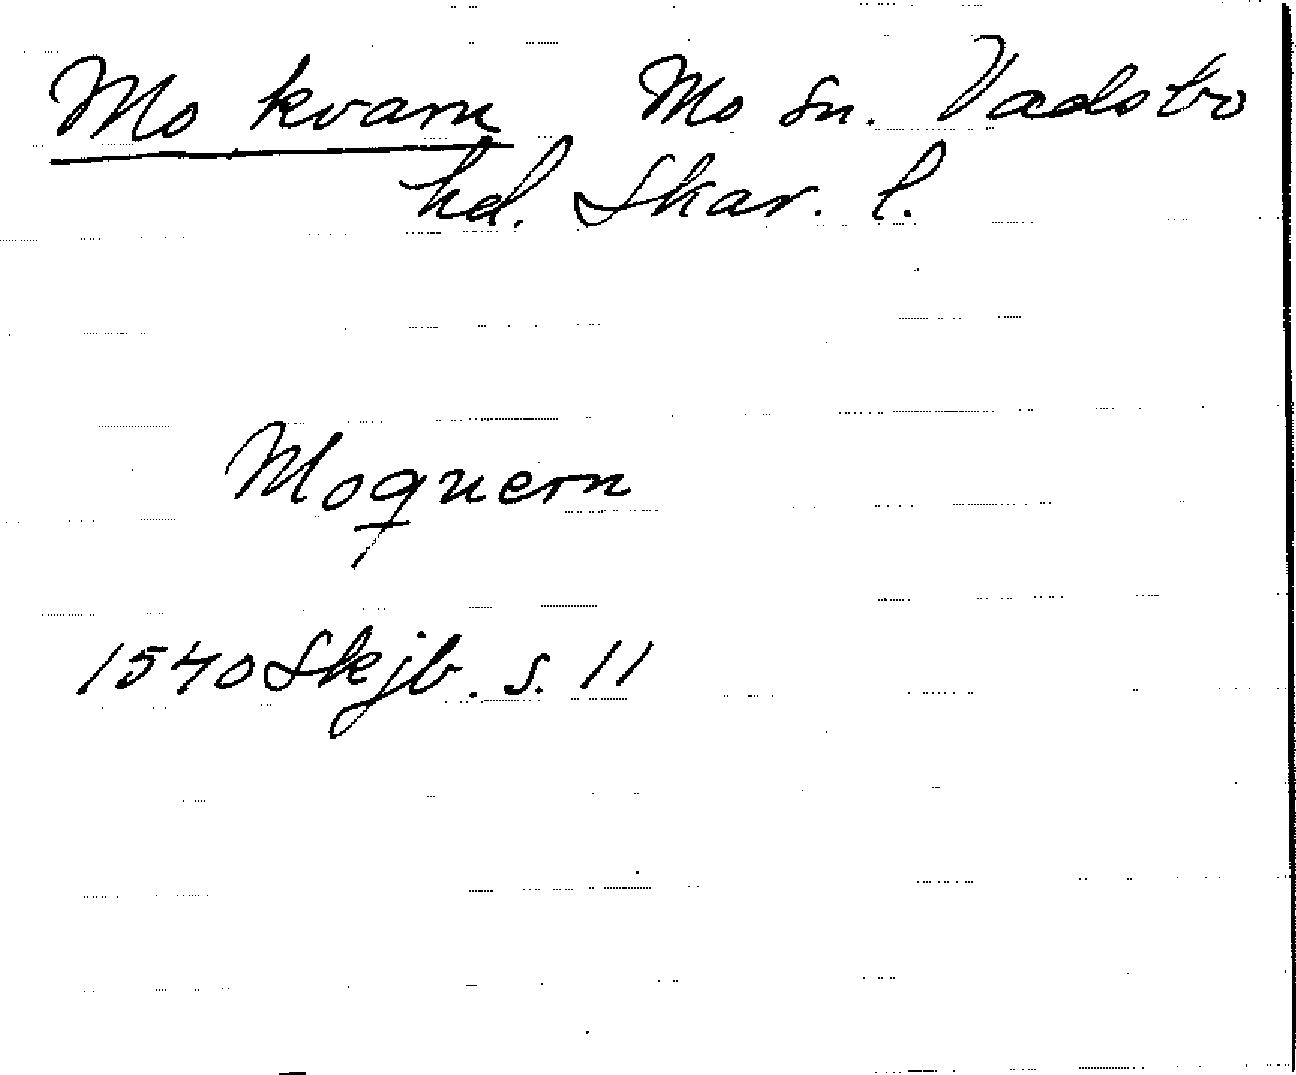 Mo kvarn Mo sn. Vadsbo
hd. Skar. l.
Moquern
1540 Skjb. s. 11